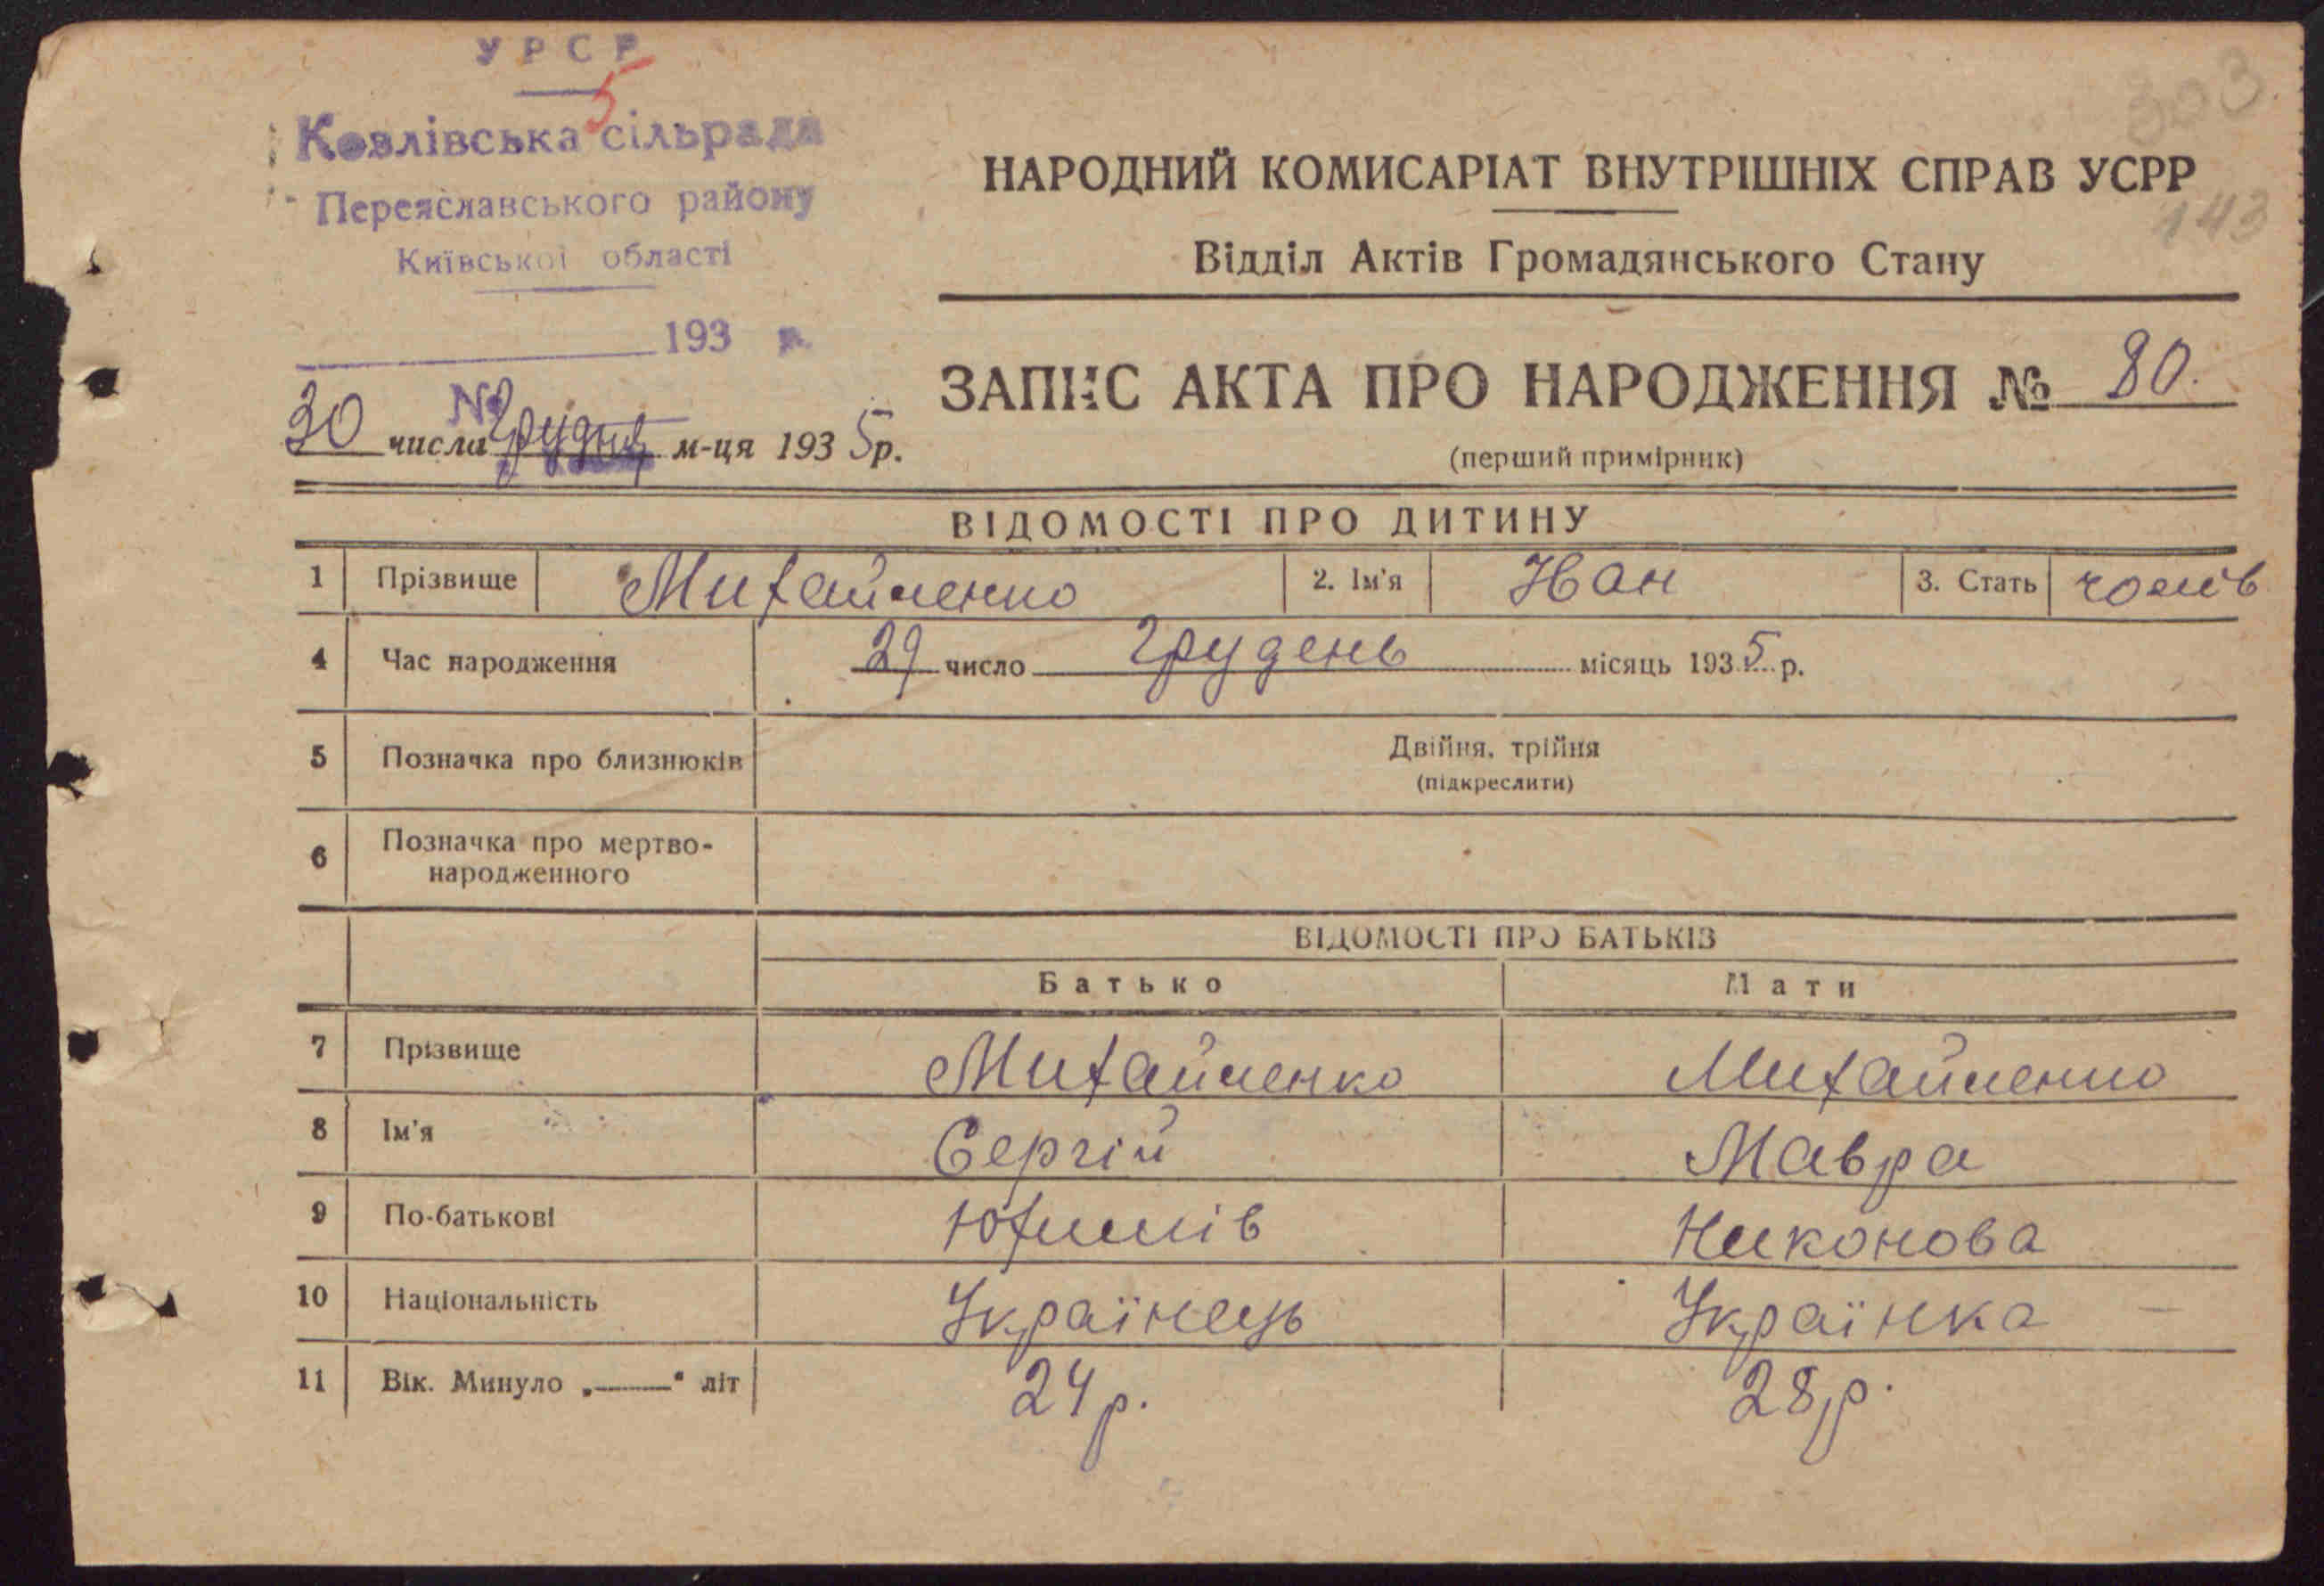 УРСР
5
Козлівська сільрада
Переяславського району
Київської області
193 р.
№
303
143
НАРОДНИЙ КОМИСАРІАТ ВНУТРІШНІХ СПРАВ УСРР
Відділ Актів Громадянського Стану
ЗАПИС АКТА ПРО НАРОДЖЕННЯ № 80.
(перший примірник)
30 числа Грудня м-ця 1935 р.
ВІДОМОСТІ ПРО ДИТИНУ
1 Прізвище Михайленко 2. Ім'я Нан 3. Стать чолов
4 Час народження 29 число Грудень місяць 1935 р.
5 Позначка про близнюків Двійня, трійня
(підкреслити)
6 Позначка про мертво-
народженного
ВІДОМОСТІ ПРО БАТЬКІВ
Батько Мати
7 Прізвище Михайленко Михайленко
8 Ім'я Сергій Мавра
9 По-батькові Юхимів Никонова
10 Національність Українець Українка
11 Вік. Минуло „——“ літ 24 р. 28 р.